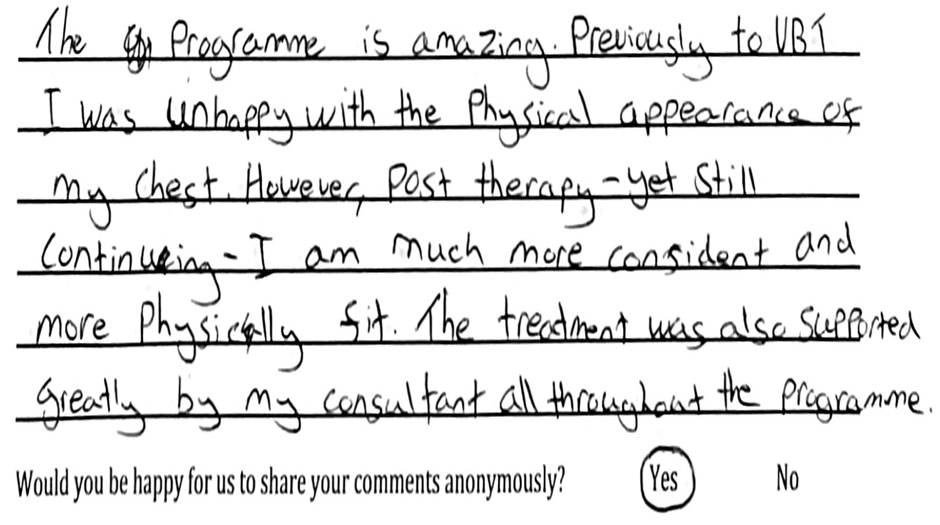 The Programme is amazing. Previously to VBT
I was unhappy with the Physical appearance of
my chest. However, Post therapy - yet Still
Continueing - I am much more confident and
more Physically fit. The treatment was also Supported
greatly by my consultant all throughout the programme.
Would you be happy for us to share your comments anonymously? Yes No